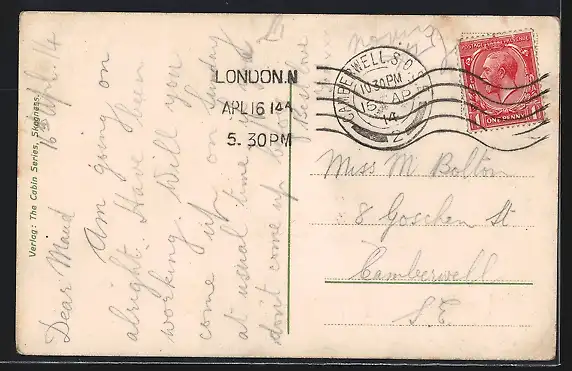 16 April /14
Dear Maud
Am going on
alright. Have been
working. Will you
come up on Sunday
at usual time
don't come up
before
Verlag: The Cabin Series, Skegness.
LONDON.N
APL 16 14
5.30PM
CAMBERWELL.S.O.
10.30PM
AP
14
2
POSTAGE
ONE PENNY
Miss M Bolton
8 Goschen St
Camberwell
S.E.